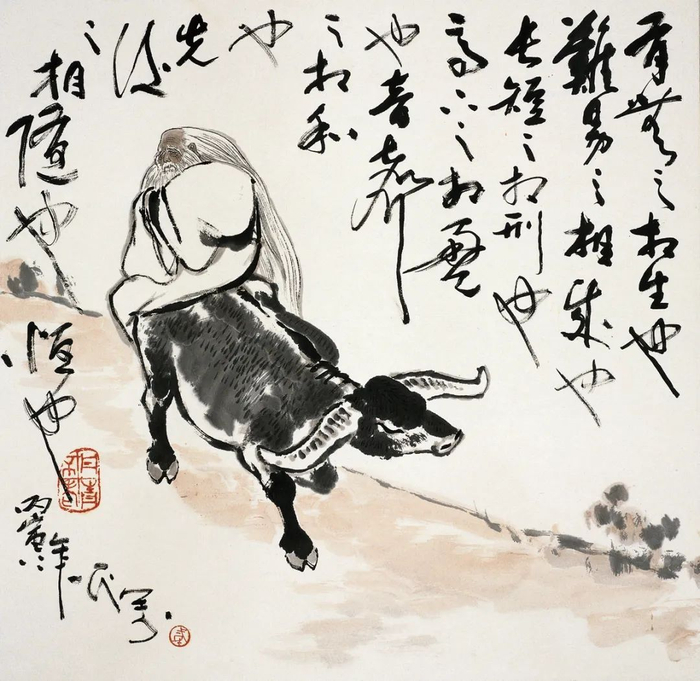 有無之相生也
難易之相成也
長短之相刑也
高下之相盈
也音聲
之相和
也
先
後
之相隨也
恆也
丙寅年